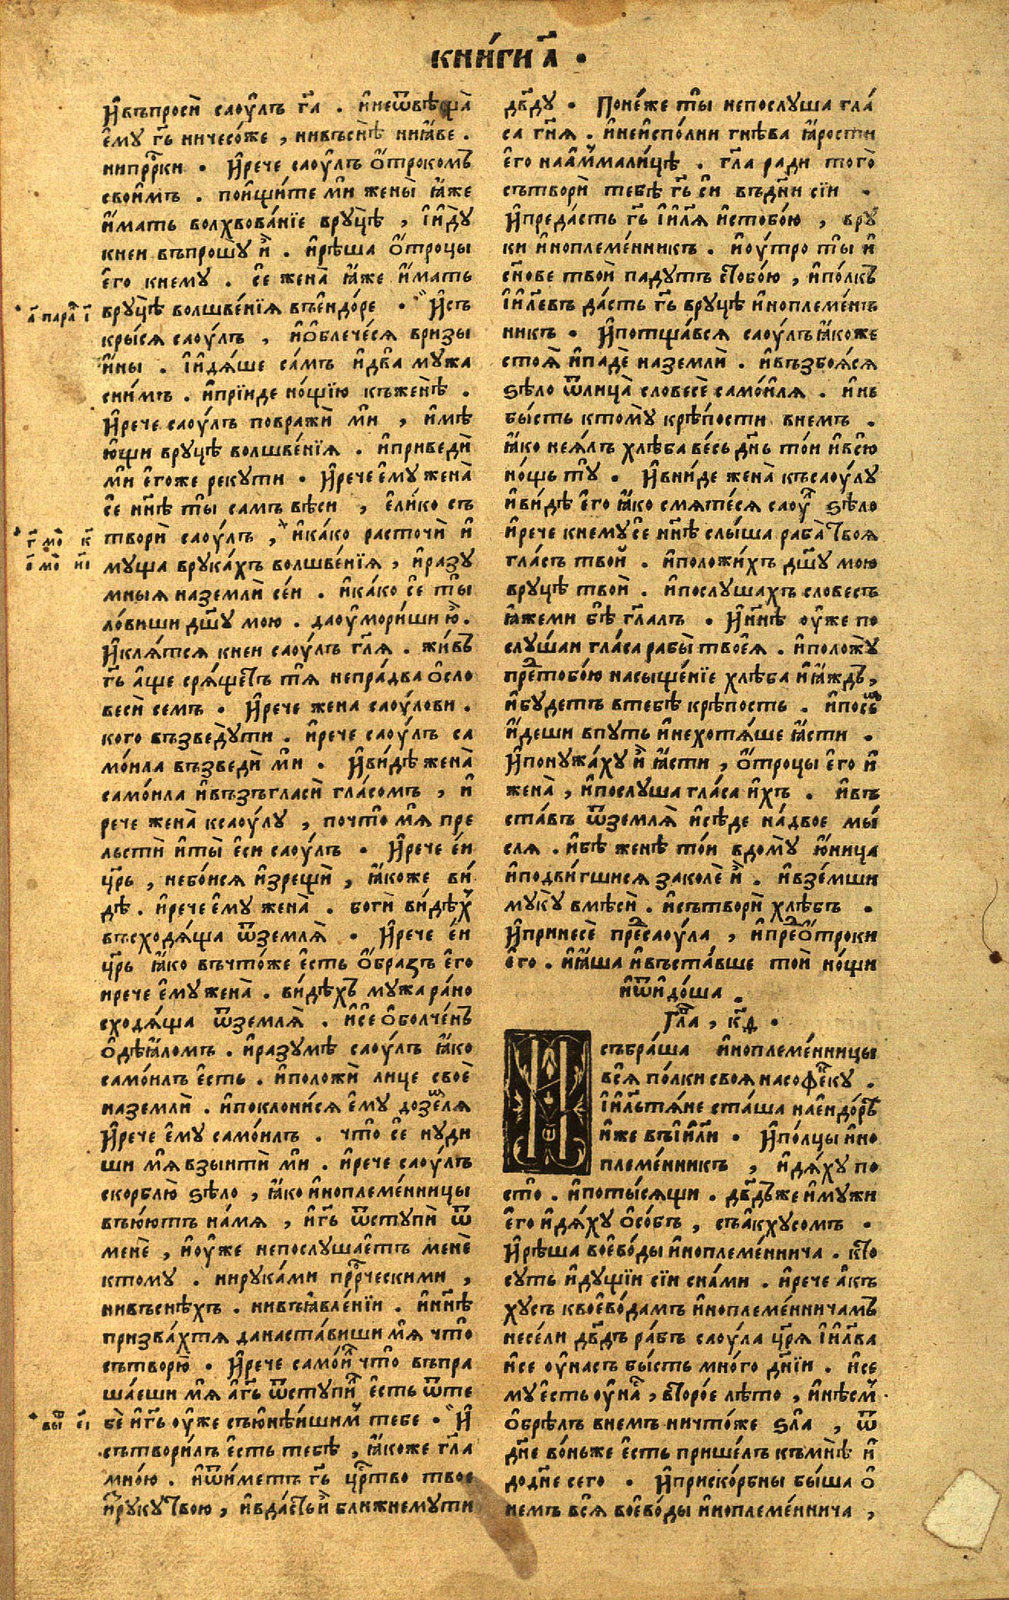 КНИ́ГИ А҃ ·
И҆въпросѝ саоу́лъ г҃а . и҆неѿвѣща̀
є҆му г҃ь ничесо́же , нивъснѣ̀ ниꙗ҆́ве .
нипр҇рки · И҆рече саоу́лъ ѻ҆́трокомъ
свои̂мъ . пои҆щи́те мѝ жены̀ ꙗ҆́же
и҆́мать волхвова́нїе вруцѣ̀ , і҆и҆дꙋ̀
кнеи въпрошꙋ̀ и҆̀ . и҆рѣ́ша ѻ҆́троцы
є҆го кнему . сѐ жена̀ ꙗ҆́же и҆́мать
вруцѣ̀ волшве́нїѧ въе҆ндо́ре · И҆съ
кры́сѧ саоу́лъ , и҆ѻ҆блече́сѧ вризы
и҆́ны . і҆и҆дѧ́ше са́мъ и҆два̀ му́жа
сни́мъ . и҆прїиде но́щїю къженѣ̀ .
И҆рече саоу́лъ повражѝ мѝ , и҆мѣ
ю҆щи вруцѣ̀ волшве́нїѧ . и҆приведѝ
мѝ є҆го́же рекути · И҆рече є҆му жена̀
сѐ нн҃ѣ ты̀ самъ вѣ́си , є҆ли́ко съ
творѝ саоу́лъ , и҆ка́ко расточѝ и҆
муща врука́хъ волшве́нїѧ , и҆разу
мныѧ наземлѝ се́и . и҆ка́ко сѐ ты̀
ло́виши дш҃у мою . даоу҆мори́ши ю҆̀ .
И҆клѧ́тсѧ кнеи саоу́лъ гл҃ѧ . жи́въ
г҃ь а҆́ще срѧ́щетъ тѧ̀ непра́вда ѻ҆сло
веси семъ · И҆рече жена саоу́лови .
кого възведꙋ̀ти . и҆рече саоу́лъ са
мо́ила възведѝ мѝ . И҆ви́дѣ жена̀
само́ила и҆възъгласѝ гла́сомъ , и҆
рече жена̀ ксаоу́лу , почто̀ мѧ̀ пре
льстѝ и҆ты̀ є҆си саоу́лъ · И҆рече є҆́и
цр҃ь , небо́исѧ и҆зрещѝ , ꙗ҆́коже ви́
дѣ̀ . и҆рече є҆му жена̀ . боги ви́дѣхъ
въсходѧ́ща ѿземлѧ̀ · И҆рече є҆́и
цр҃ь ꙗ҆́ко въчто́же є҆сть ѻ҆́бразъ є҆го
ирече є҆му жена̀ . ви́дѣхъ мужа ра́но
сходѧ́ща ѿземлѧ̀ . и҆се ѻ҆болче́нъ
ѻ҆дѣꙗ҆ломъ . и҆разумѣ̀ саоу́лъ ꙗ҆́ко
само́илъ є҆́сть . и҆положѝ лице своѐ
наземлѝ . и҆поклони́сѧ є҆му дозе́млѧ
И҆рече є҆му само́илъ . что̀ сѐ нуди
ши мѧ̀ взы́итѝ мѝ . и҆рече саоу́лъ
скорблю̀ ѕѣло̀ , ꙗ҆́ко и҆ноплеме́нницы
въю҆́ютъ на́мѧ , и҆г҃ь ѿступѝ ѿ
менѐ , и҆оу҆же непослу́шаетъ менѐ
ктому . нирука́ми пр҇рческими ,
нивъснѣ́хъ . нивъꙗ҆вле́нїи . и҆нн҃ѣ
призва́хтѧ данаста́виши мѧ̀ что̀
сътворю̀ · И҆рече само́илъ что̀ въпра
ша́еши мѧ̀ а҆г҃ь ѿступи́лъ є҆сть ѿте
бѐ и҆г҃ь оу҆же съю҆нѣ́ишимъ тебе · И҆
сътвори́лъ є҆сть тебѣ̀ , ꙗ҆́коже гл҃а
мно́ю . и҆ѿи́метъ г҃ь цр҇тво твое
и҆рукꙋ̀твою , и҆вда́стъи҆̀ ближнемути
дв҃ду · Поне́же ты̀ непослу́ша гла́
са гн҃ѧ . и҆неи҆спо́лни гнѣва ꙗ҆рости
є҆го наа҆мали́цѣ . гл҃а ради того̀
сътворѝ тебѣ̀ г҃ь сѝ въдн҃и сїи ·
И҆преда́сть г҃ь і҆и҃лѧ и҆стобо́ю , вру́
ки и҆ноплеме́нникъ . и҆оу́тро ты̀ и҆
сн҃ове твоѝ падутъ стобо́ю , и҆по́лкъ
і҆и҃левъ да́сть г҃ь вруцѣ̀ и҆ноплеме́нъ
никъ · И҆потща́всѧ саоу́лъꙗ҆́коже
стоѧ̀ и҆падѐ наземлѝ . и҆възбоѧ́сѧ
ѕѣло ѿлица̀ словесѐ само́илѧ . и҆нъ
бы́сть ктому̀ крѣ́пости внемъ .
ꙗ҆́ко неѧ́лъ хлѣба весь дн҃ь то́и и҆всю̀
но́щь тꙋ̀ . И҆вни́де жена̀ къса́улу
и҆ви́дѣ є҆го ꙗ҆́ко смѧте́сѧ саоу́лъ ѕѣло
и҆рече кнему сѐ нн҃ѣ слы́ша раба̀ твоѧ̀
гла́съ тво́й . и҆положи́хъ дш҃у мою
вруцѣ̀ твоѝ . и҆послуша́хъ словесъ
ꙗ҆́жеми бѣ̀ гл҃алъ · И҆нн҃ѣ оу҆же по
слу́шаи гла́са рабы̀ твоеѧ̀ . и҆положꙋ̀
пре́дтобо́ю насыще́нїе хлѣба и҆ꙗ҆́ждь ,
и҆будетъ втебѣ̀ крѣпость . и҆посе́мъ
и҆́деши впуть и҆нехотѧ́ше ꙗ҆́сти .
И҆понужа́ху и҆̀ ꙗ҆́сти , ѻ҆́троцы є҆го и҆
жена̀ , и҆послуша гла́са и҆́хъ . и҆въ
ста́въ ѿземлѧ̀ и҆сѣде на́двое мы́
слѧ . и҆бѣ̀ женѣ̀ то́и вдомꙋ̀ ю҆́ница
и҆подви́гшисѧ закoлѐ и҆̀ . и҆взе́мши
мукꙋ̀ вмѣсѝ . и҆сътворѝ хлѣбъ .
И҆принесѐ пре́дсаоула , и҆пре́дѻ҆́троки
є҆го . и҆ꙗ҆́ша и҆въста́вше тоѝ но́щи
и҆ѿи҆до́ша .
Гл҃а , к҃д ·
И҆събра́ша и҆ноплеме́нницы
всѧ̀ по́лки своѧ насофеку .
і҆и҃льтѧ́не ста́ша нае҆ндо́ръ
и҆́же въі҆и҃ли · И҆по́лцы и҆но
племе́нникъ , и҆дѧ́ху по
сто̀ . и҆поты́сѧщи . дв҃дъже и҆мужи
є҆го и҆дѧ́ху ѻ҆со́бъ , съа҆кхусомъ ·
И҆рѣ́ша воево́ды и҆ноплеме́ннича . кто
суть и҆ду́щїи сїи сна́ми . и҆рече а҆къ
хусъ квоево́дамъ и҆ноплеме́нничамъ
несе́ли дв҃дъ ра́бъ саоула цр҃ѧ і҆и҃лва
и҆се оу҆насъ бы́сть мно́го дн҃їи . и҆се
муесть оу҆на́съ , второ́е лѣто , и҆нѣ́смь
ѻ҆брѣлъ внемъ ничто́же ѕла̀ , ѿ
дн҃е во́ньже є҆сть пришелъ къмнѣ̀ и҆
додн҃е сего · И҆приско́рбны бы́ша ѻ҆
немъ всѧ̀ воево́ды и҆ноплеме́ннича ,
а҃ пара҃ і҃
вы̑ є҃і